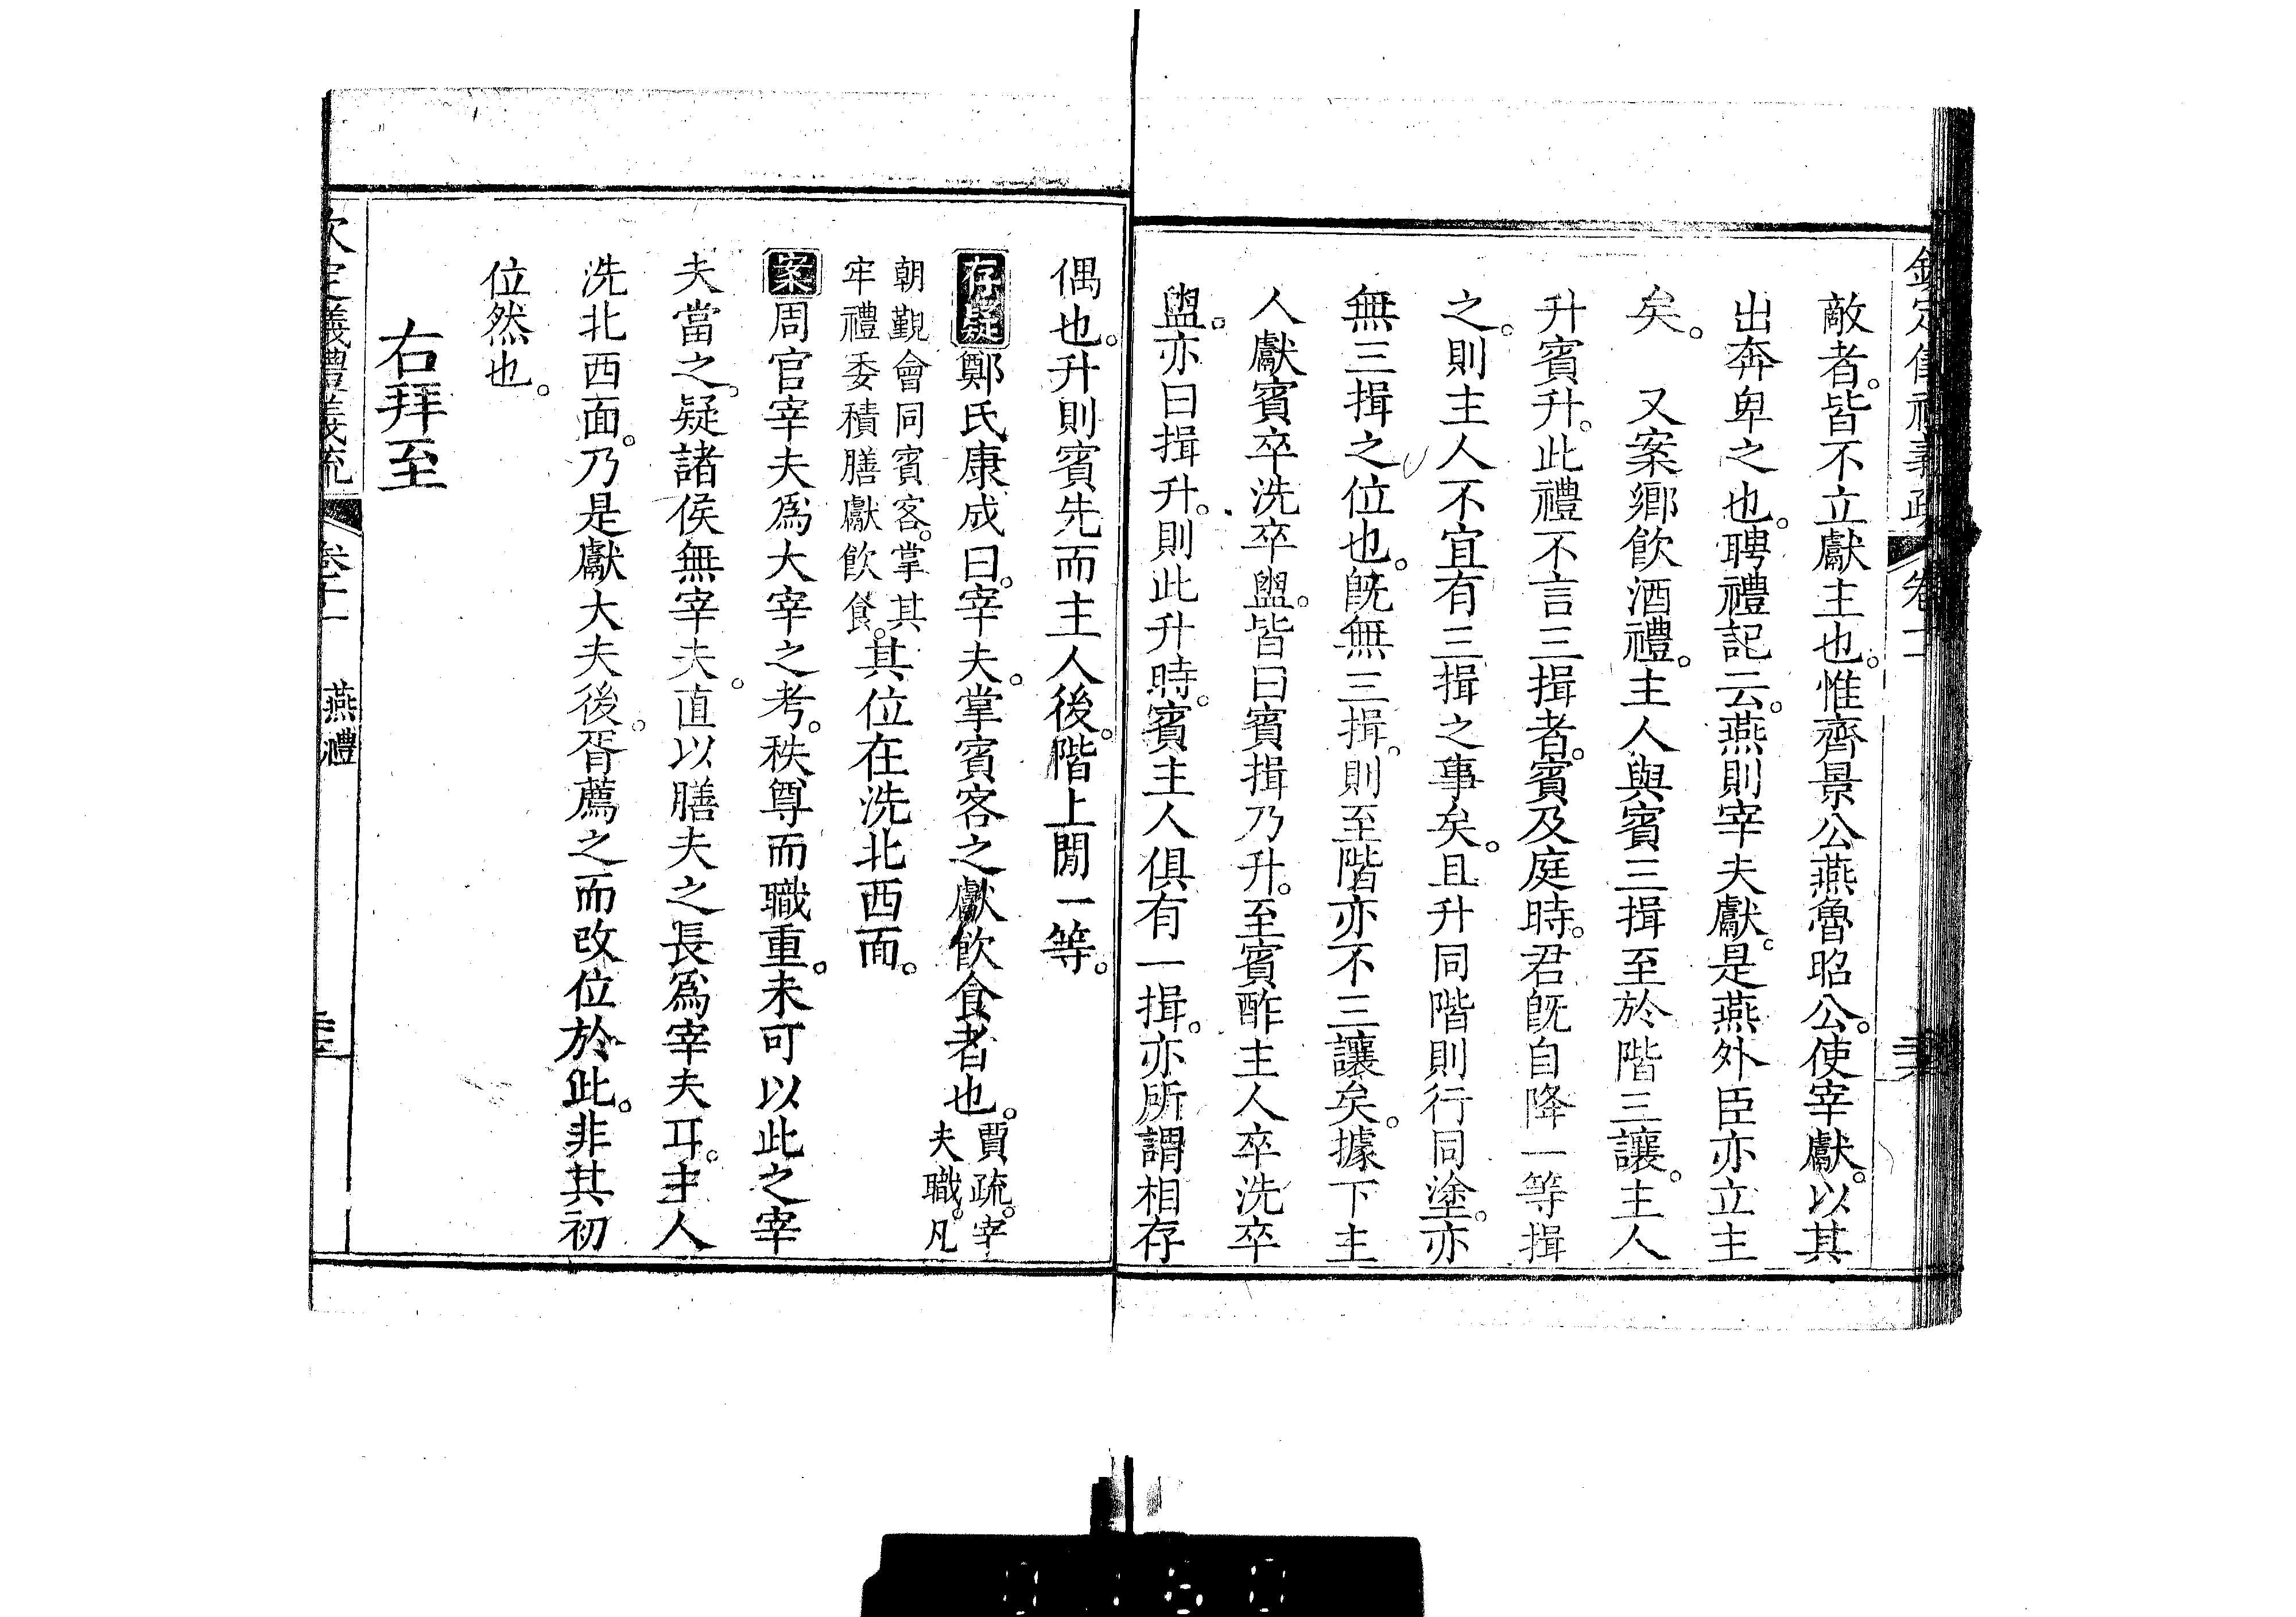 敵者。皆不立獻主也。惟齊景公燕魯昭公。使宰獻。以其
出奔卑之也。聘禮記云。燕則宰夫獻。是燕外臣亦立主
矣。 又案鄉飲酒禮。主人與賓三揖至於階三讓。主人
升賓升。此禮不言三揖者。賓及庭時。君旣自降一等揖
之。則主人不宜有三揖之事矣。且升同階則行同塗。亦
無三揖之位也。旣無三揖。則至階亦不三讓矣。據下主
人獻賓卒洗卒盥。皆曰賓揖乃升。至賓酢主人卒洗卒
盥。亦曰揖升。則此升時。賓主人俱有一揖。亦所謂相存
偶也。升則賓先而主人後。階上閒一等。
存疑鄭氏康成曰。宰夫。掌賓客之獻飲食者也。賈疏。宰夫職。凡
朝覲會同賓客。掌其牢禮委積膳獻飲食。其位在洗北西面。
案周官宰夫爲大宰之考。秩尊而職重。未可以此之宰
夫當之。疑諸侯無宰夫。直以膳夫之長爲宰夫耳。主人
洗北西面。乃是獻大夫後。胥薦之而改位於此。非其初
位然也。
右拜至
欽定義禮義疏 卷十一 燕禮